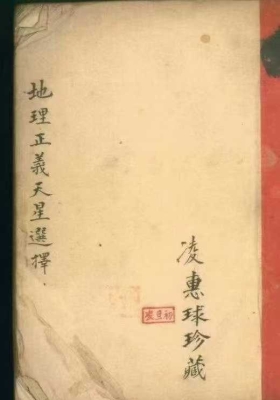 地理正義天星選擇
凌惠球珍藏